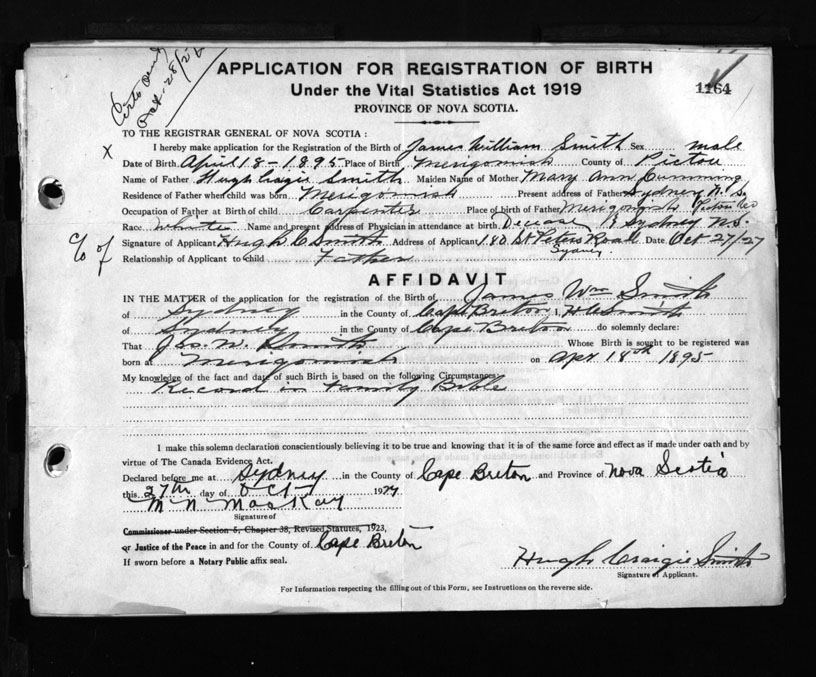 Oct. 28/27
APPLICATION FOR REGISTRATION OF BIRTH
Under the Vital Statistics Act 1919
PROVINCE OF NOVA SCOTIA.
1164
TO THE REGISTRAR GENERAL OF NOVA SCOTIA :
X I hereby make application for the Registration of the Birth of James William Smith Sex male
Date of Birth April 18 - 1895 Place of Birth Merigomish County of Pictou
Name of Father Hugh Cragie Smith Maiden Name of Mother Mary Ann Cumming
Residence of Father when child was born Merigomish Present address of Father Sydney N.S.
Occupation of Father at Birth of child Carpenter Place of birth of Father Merigomish Pictou Co
Race White Name and present address of Physician in attendance at birth Sydney N.S.
c/o of Signature of Applicant Hugh C Smith Address of Applicant 180 St Peters Road Date Oct 27/27
Sydney.
Relationship of Applicant to child Father
AFFIDAVIT
IN THE MATTER of the application for the registration of the Birth of James Wm Smith
of Sydney in the County of Cape Breton I, H C Smith
of Sydney in the County of Cape Breton do solemnly declare:
That Jas. W. Smith Whose Birth is sought to be registered was
born at Merigomish on Apr 18th 1895
My knowledge of the fact and date of such Birth is based on the following Circumstances
Record in Family Bible
I make this solemn declaration conscientiously believing it to be true and knowing that it is of the same force and effect as if made under oath and by
virtue of The Canada Evidence Act.
Declared before me at Sydney in the County of Cape Breton and Province of Nova Scotia
this 27th day of Oct 1927
M N MacKay
Signature of
Commissioner under Section 5, Chapter 38, Revised Statutes, 1923,
or Justice of the Peace in and for the County of Cape Breton
If sworn before a Notary Public affix seal.
Hugh Craigie Smith
Signature of Applicant.
For Information respecting the filling out of this Form, see Instructions on the reverse side.